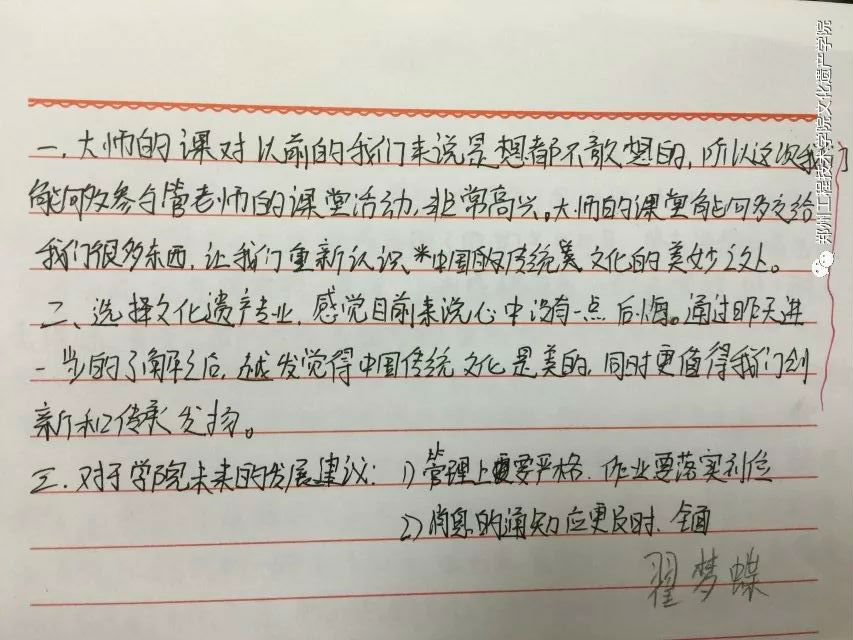 一、大师的课对以前的我们来说是想都不敢想的，所以这次我们
能够参与管老师的课堂活动，非常高兴。大师的课堂能够多交给
我们很多东西，让我们重新认识中国的传统美文化的美妙之处。
二、选择文化遗产专业，感觉目前来说心中没有一点后悔。通过昨天进
一步的了解之后，越发觉得中国传统文化是美的，同时更值得我们创
新和传承发扬。
三、对于学院未来的发展建议：1）管理上要严格，作业要落实到位
2）消息的通知应更及时、全面
翟梦蝶
郑州工程技术学院文化遗产学院